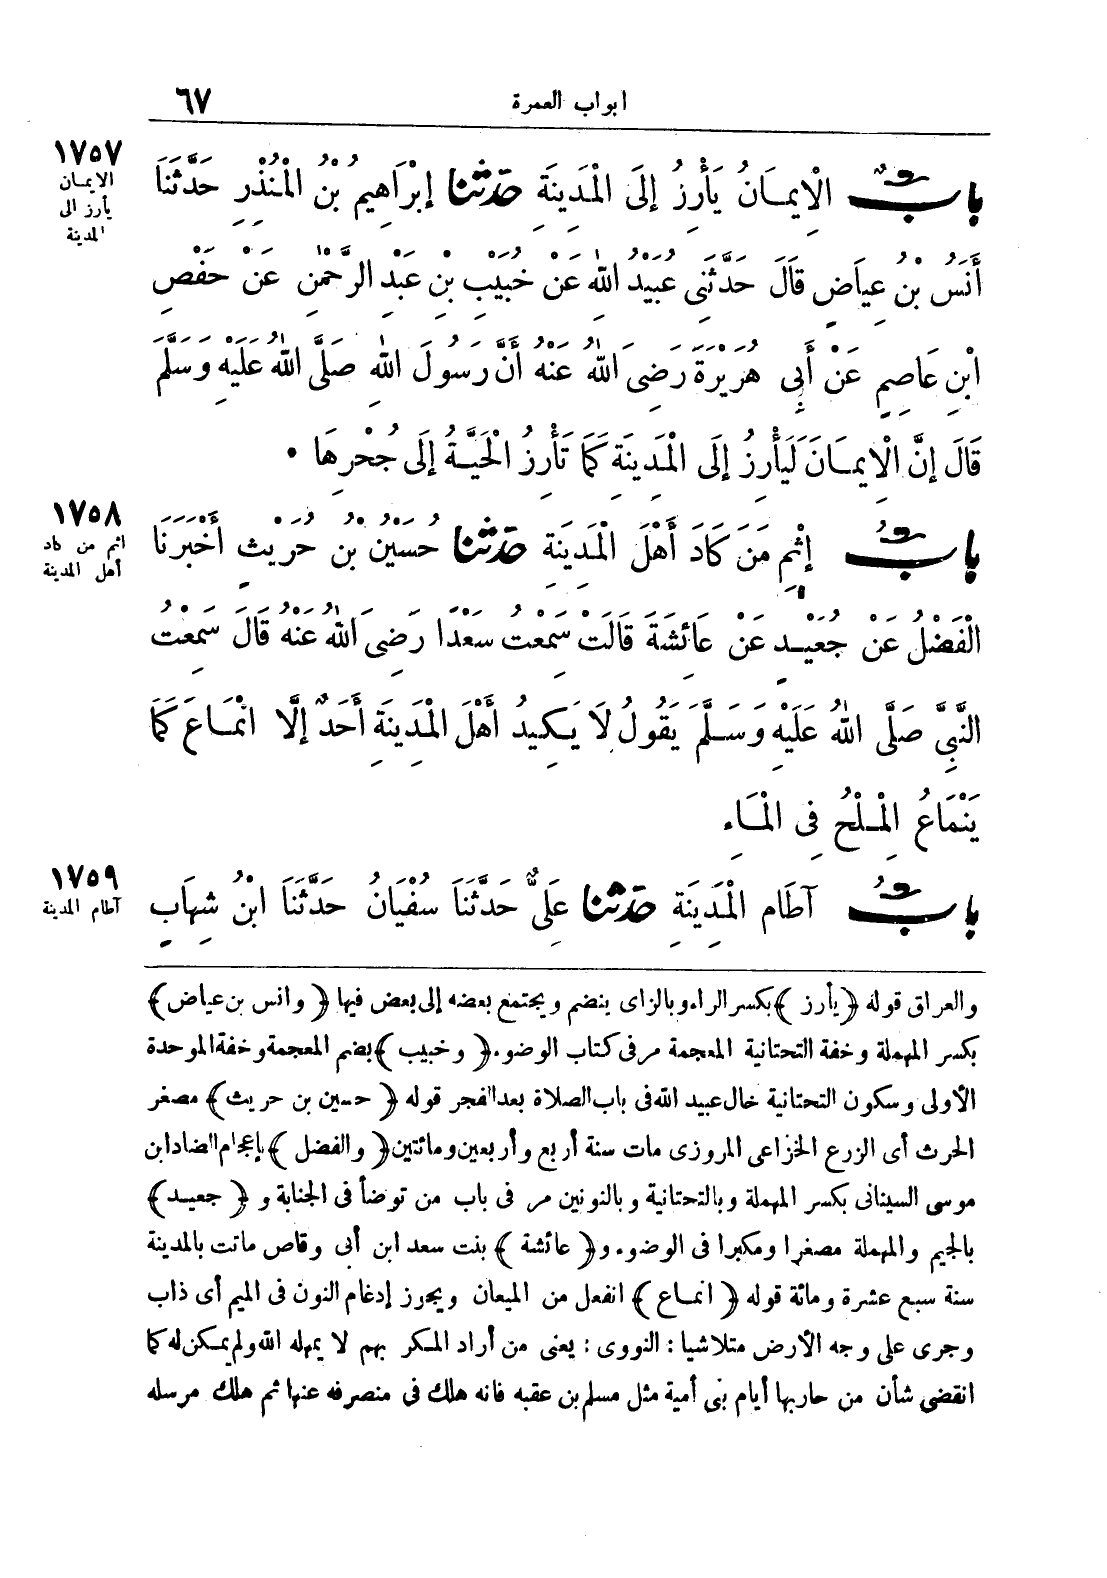 ابواب العمرة ٦٧
١٧٥٧
الايمان
يأرز الى
المدينة
بَابٌ الْإِيمَانُ يَأْرِزُ إِلَى الْمَدِينَةِ حَدَّثَنَا إِبْرَاهِيمُ بْنُ الْمُنْذِرِ حَدَّثَنَا
أَنَسُ بْنُ عِيَاضٍ قَالَ حَدَّثَنِى عُبَيْدُ اللهِ عَنْ خُبَيْبِ بْنِ عَبْدِ الرَّحْمٰنِ عَنْ حَفْصِ
ابْنِ عَاصِمٍ عَنْ أَبِى هُرَيْرَةَ رَضِىَ اللهُ عَنْهُ أَنَّ رَسُولَ اللهِ صَلَّى اللهُ عَلَيْهِ وَسَلَّمَ
قَالَ إِنَّ الْإِيمَانَ لَيَأْرِزُ إِلَى الْمَدِينَةِ كَمَا تَأْرِزُ الْحَيَّةُ إِلَى جُحْرِهَا .
١٧٥٨
اثم من كاد
أهل المدينة
بَابُ إِثْمِ مَنْ كَادَ أَهْلَ الْمَدِينَةِ حَدَّثَنَا حُسَيْنُ بْنُ حُرَيْثٍ أَخْبَرَنَا
الْفَضْلُ عَنْ جُعَيْدٍ عَنْ عَائِشَةَ قَالَتْ سَمِعْتُ سَعْدًا رَضِىَ اللهُ عَنْهُ قَالَ سَمِعْتُ
النَّبِىَّ صَلَّى اللهُ عَلَيْهِ وَسَلَّمَ يَقُولُ لَا يَكِيدُ أَهْلَ الْمَدِينَةِ أَحَدٌ إِلَّا انْمَاعَ كَمَا
يَنْمَاعُ الْمِلْحُ فِى الْمَاءِ
١٧٥٩
آطام المدينة
بَابُ آطَامِ الْمَدِينَةِ حَدَّثَنَا عَلِىٌّ حَدَّثَنَا سُفْيَانُ حَدَّثَنَا ابْنُ شِهَابٍ
والعراق قوله ﴿يأرز﴾ بكسر الراء وبالزاى ينضم ويجتمع بعضه إلى بعض فيها ﴿وانس بن عياض﴾
بكسر المهملة وخفة التحتانية المعجمة مر فى كتاب الوضوء ﴿وخبيب﴾ بضم المعجمة وخفة الموحدة
الأولى وسكون التحتانية خال عبيد الله فى باب الصلاة بعد الفجر قوله ﴿حسين بن حريث﴾ مصغر
الحرث أى الزرع الخزاعى المروزى مات سنة أربع وأربعين ومائتين ﴿والفضل﴾ بإعجام الضاد ابن
موسى السينانى بكسر المهملة وبالتحتانية وبالنونين مر فى باب من توضأ فى الجنابة و ﴿جعيد﴾
بالجيم والمهملة مصغرا ومكبرا فى الوضوء و ﴿عائشة﴾ بنت سعد ابن أبى وقاص ماتت بالمدينة
سنة سبع عشرة ومائة قوله ﴿انماع﴾ انفعل من الميعان ويجوز إدغام النون فى الميم أى ذاب
وجرى على وجه الأرض متلاشيا : النووى : يعنى من أراد المكر بهم لا يمهله الله ولم يمكن له كما
انقضى شأن من حاربها أيام بنى أمية مثل مسلم بن عقبه فانه هلك فى منصرفه عنها ثم هلك مرسله